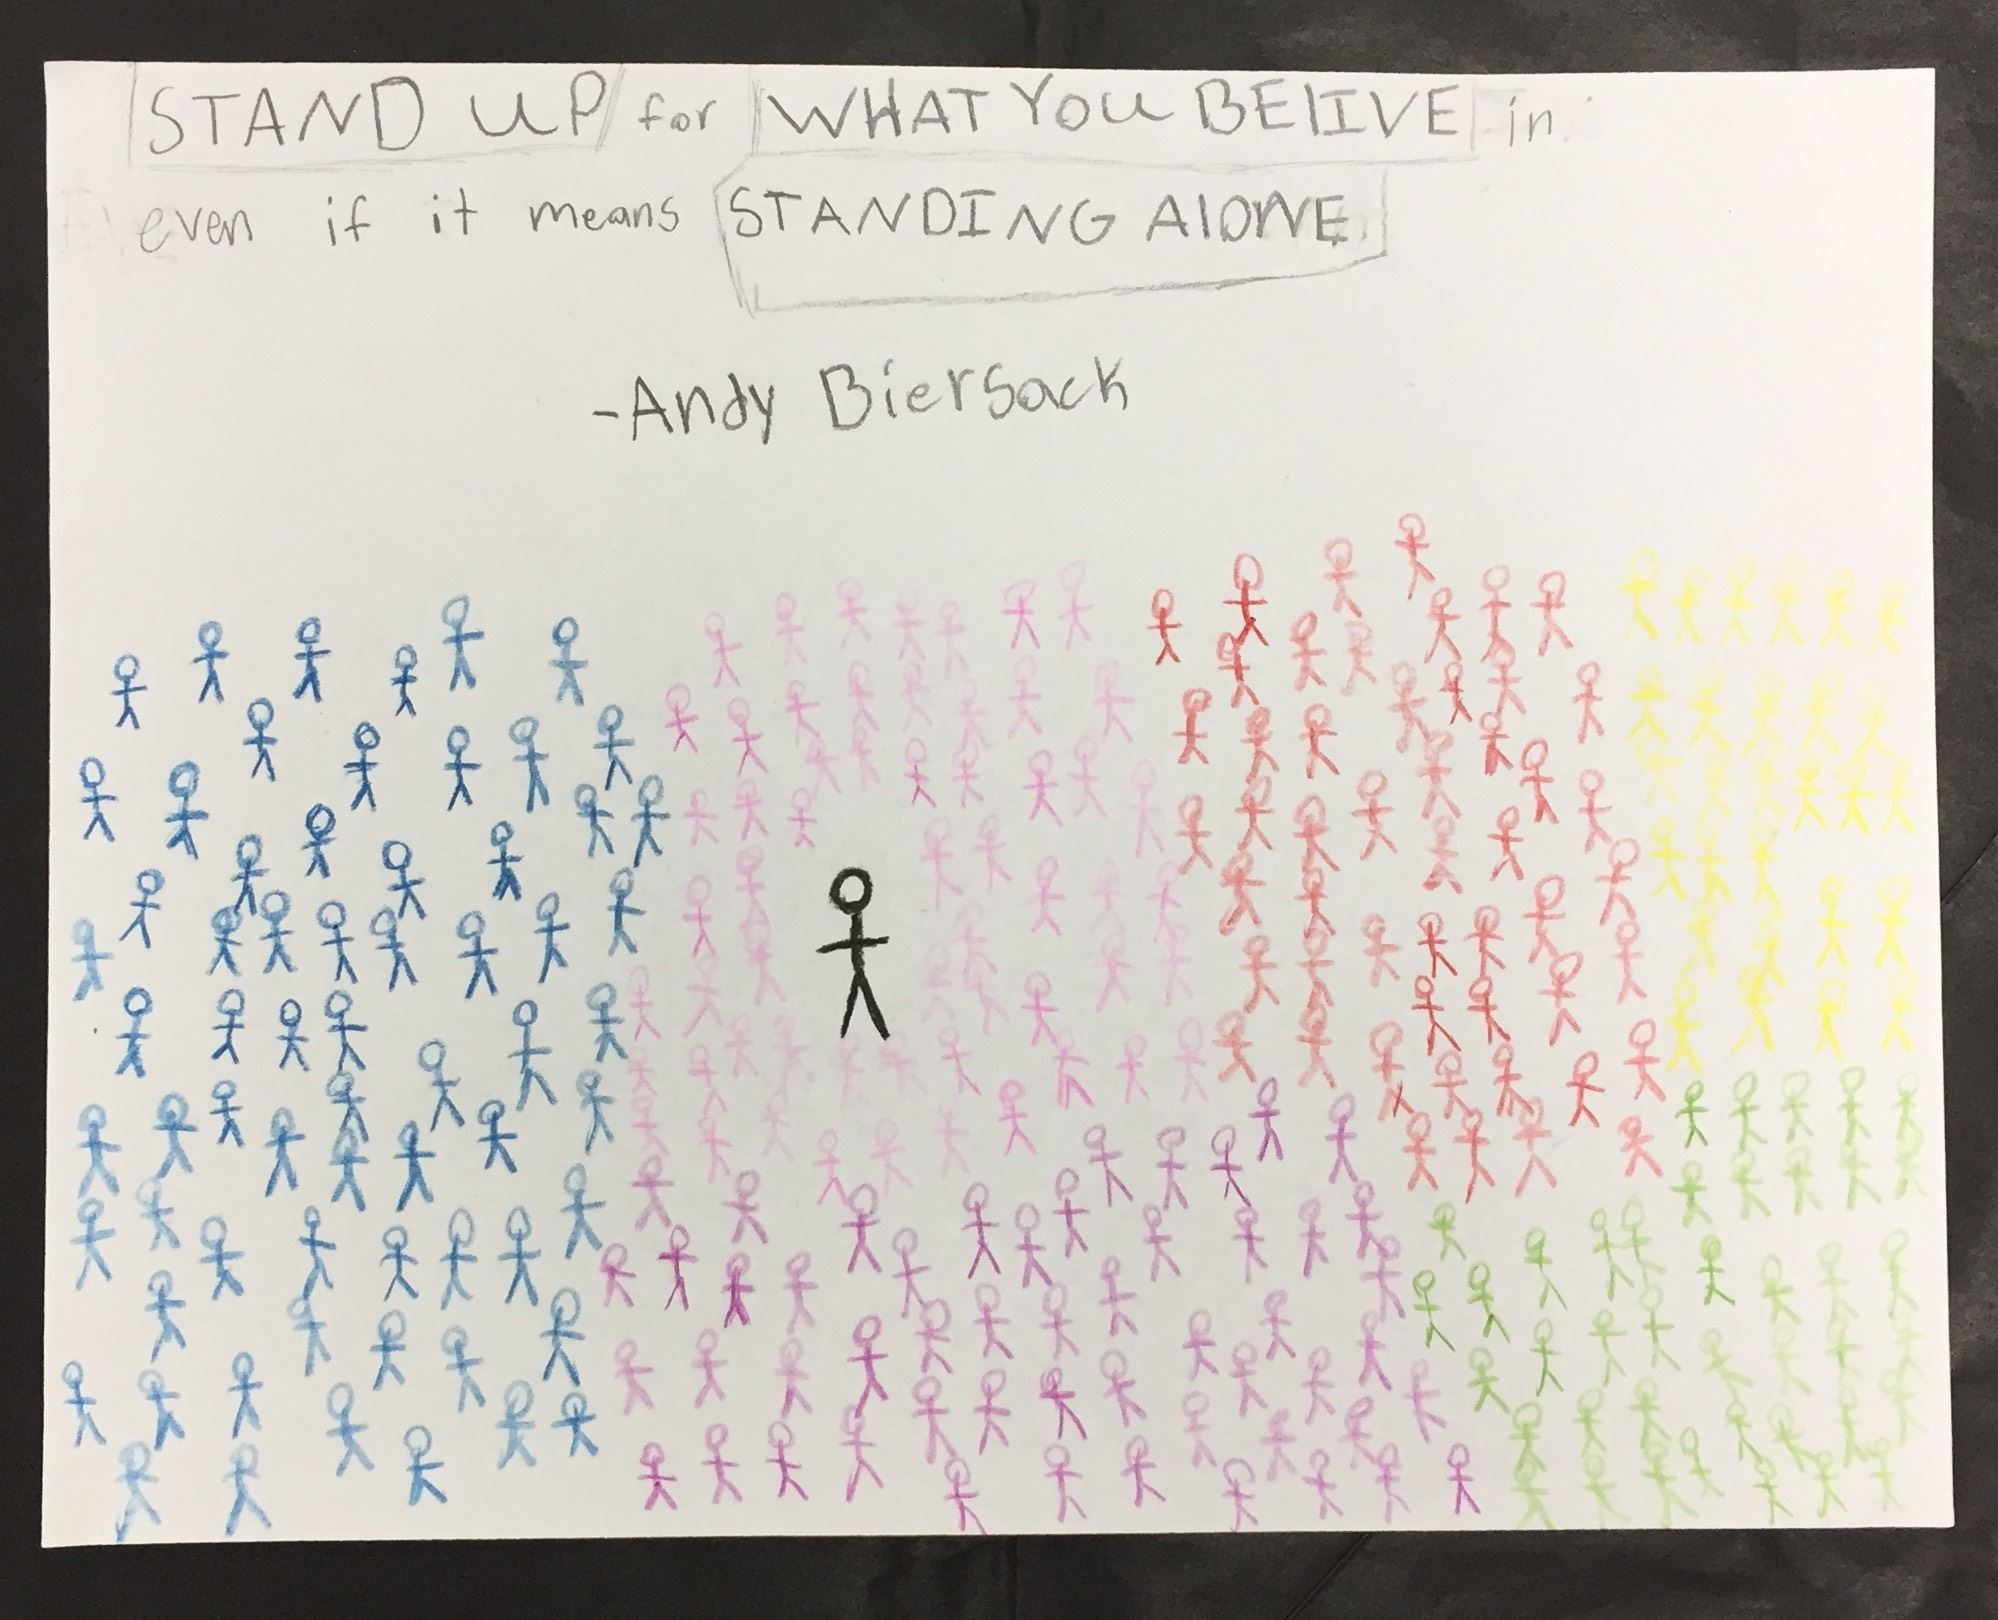 STAND UP for WHAT YOU BElIVE in
even if it means STANDING AlONE
-Andy Biersack